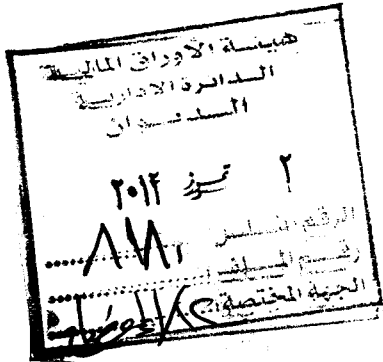 هيئة الأوراق المالية
الدائرة الادارية
الديوان
٢ تموز ٢٠١٢
الرقم المتسلسل
رقم الملف
الجهة المختصة